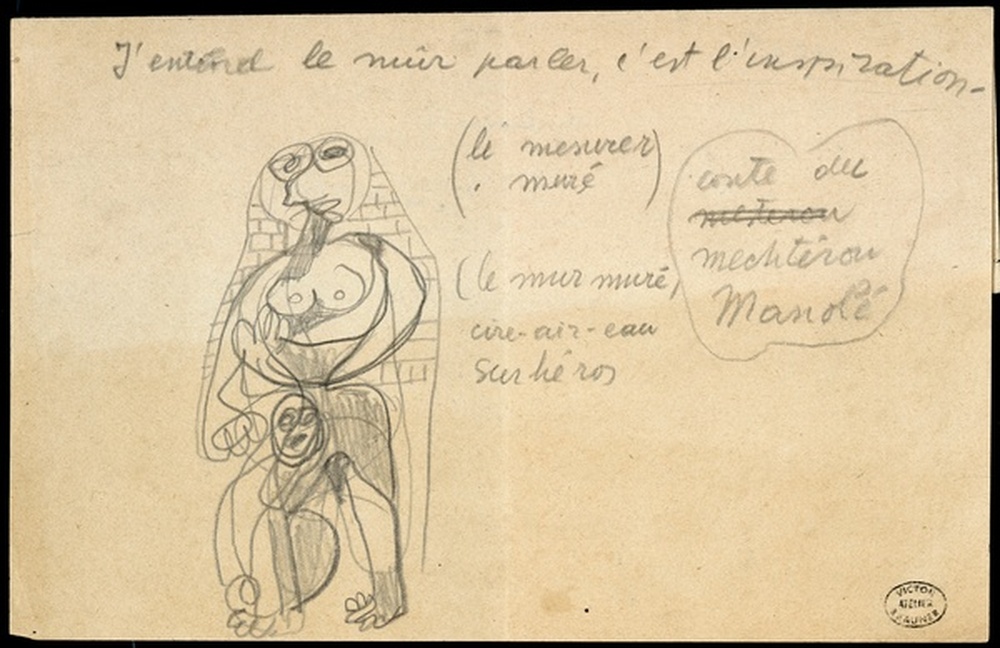 J'entend le mûr parler, c'est l'inspiration-
(le mesurer)
. muré
(le mur muré,
cire-air-eau
surhéros
conte du
mechtérou
Manolé
VICTOR
ATELIER
BRAUNER